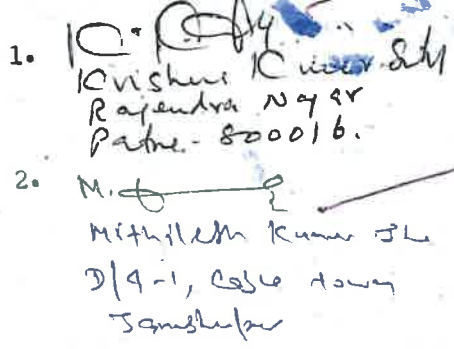 1.
Krishna Kumar
Rajendra Nagar
Patna - 800016.
2. M.
Mithilesh Kumar Jha
D/4-1, Cable Town
Jamshedpur